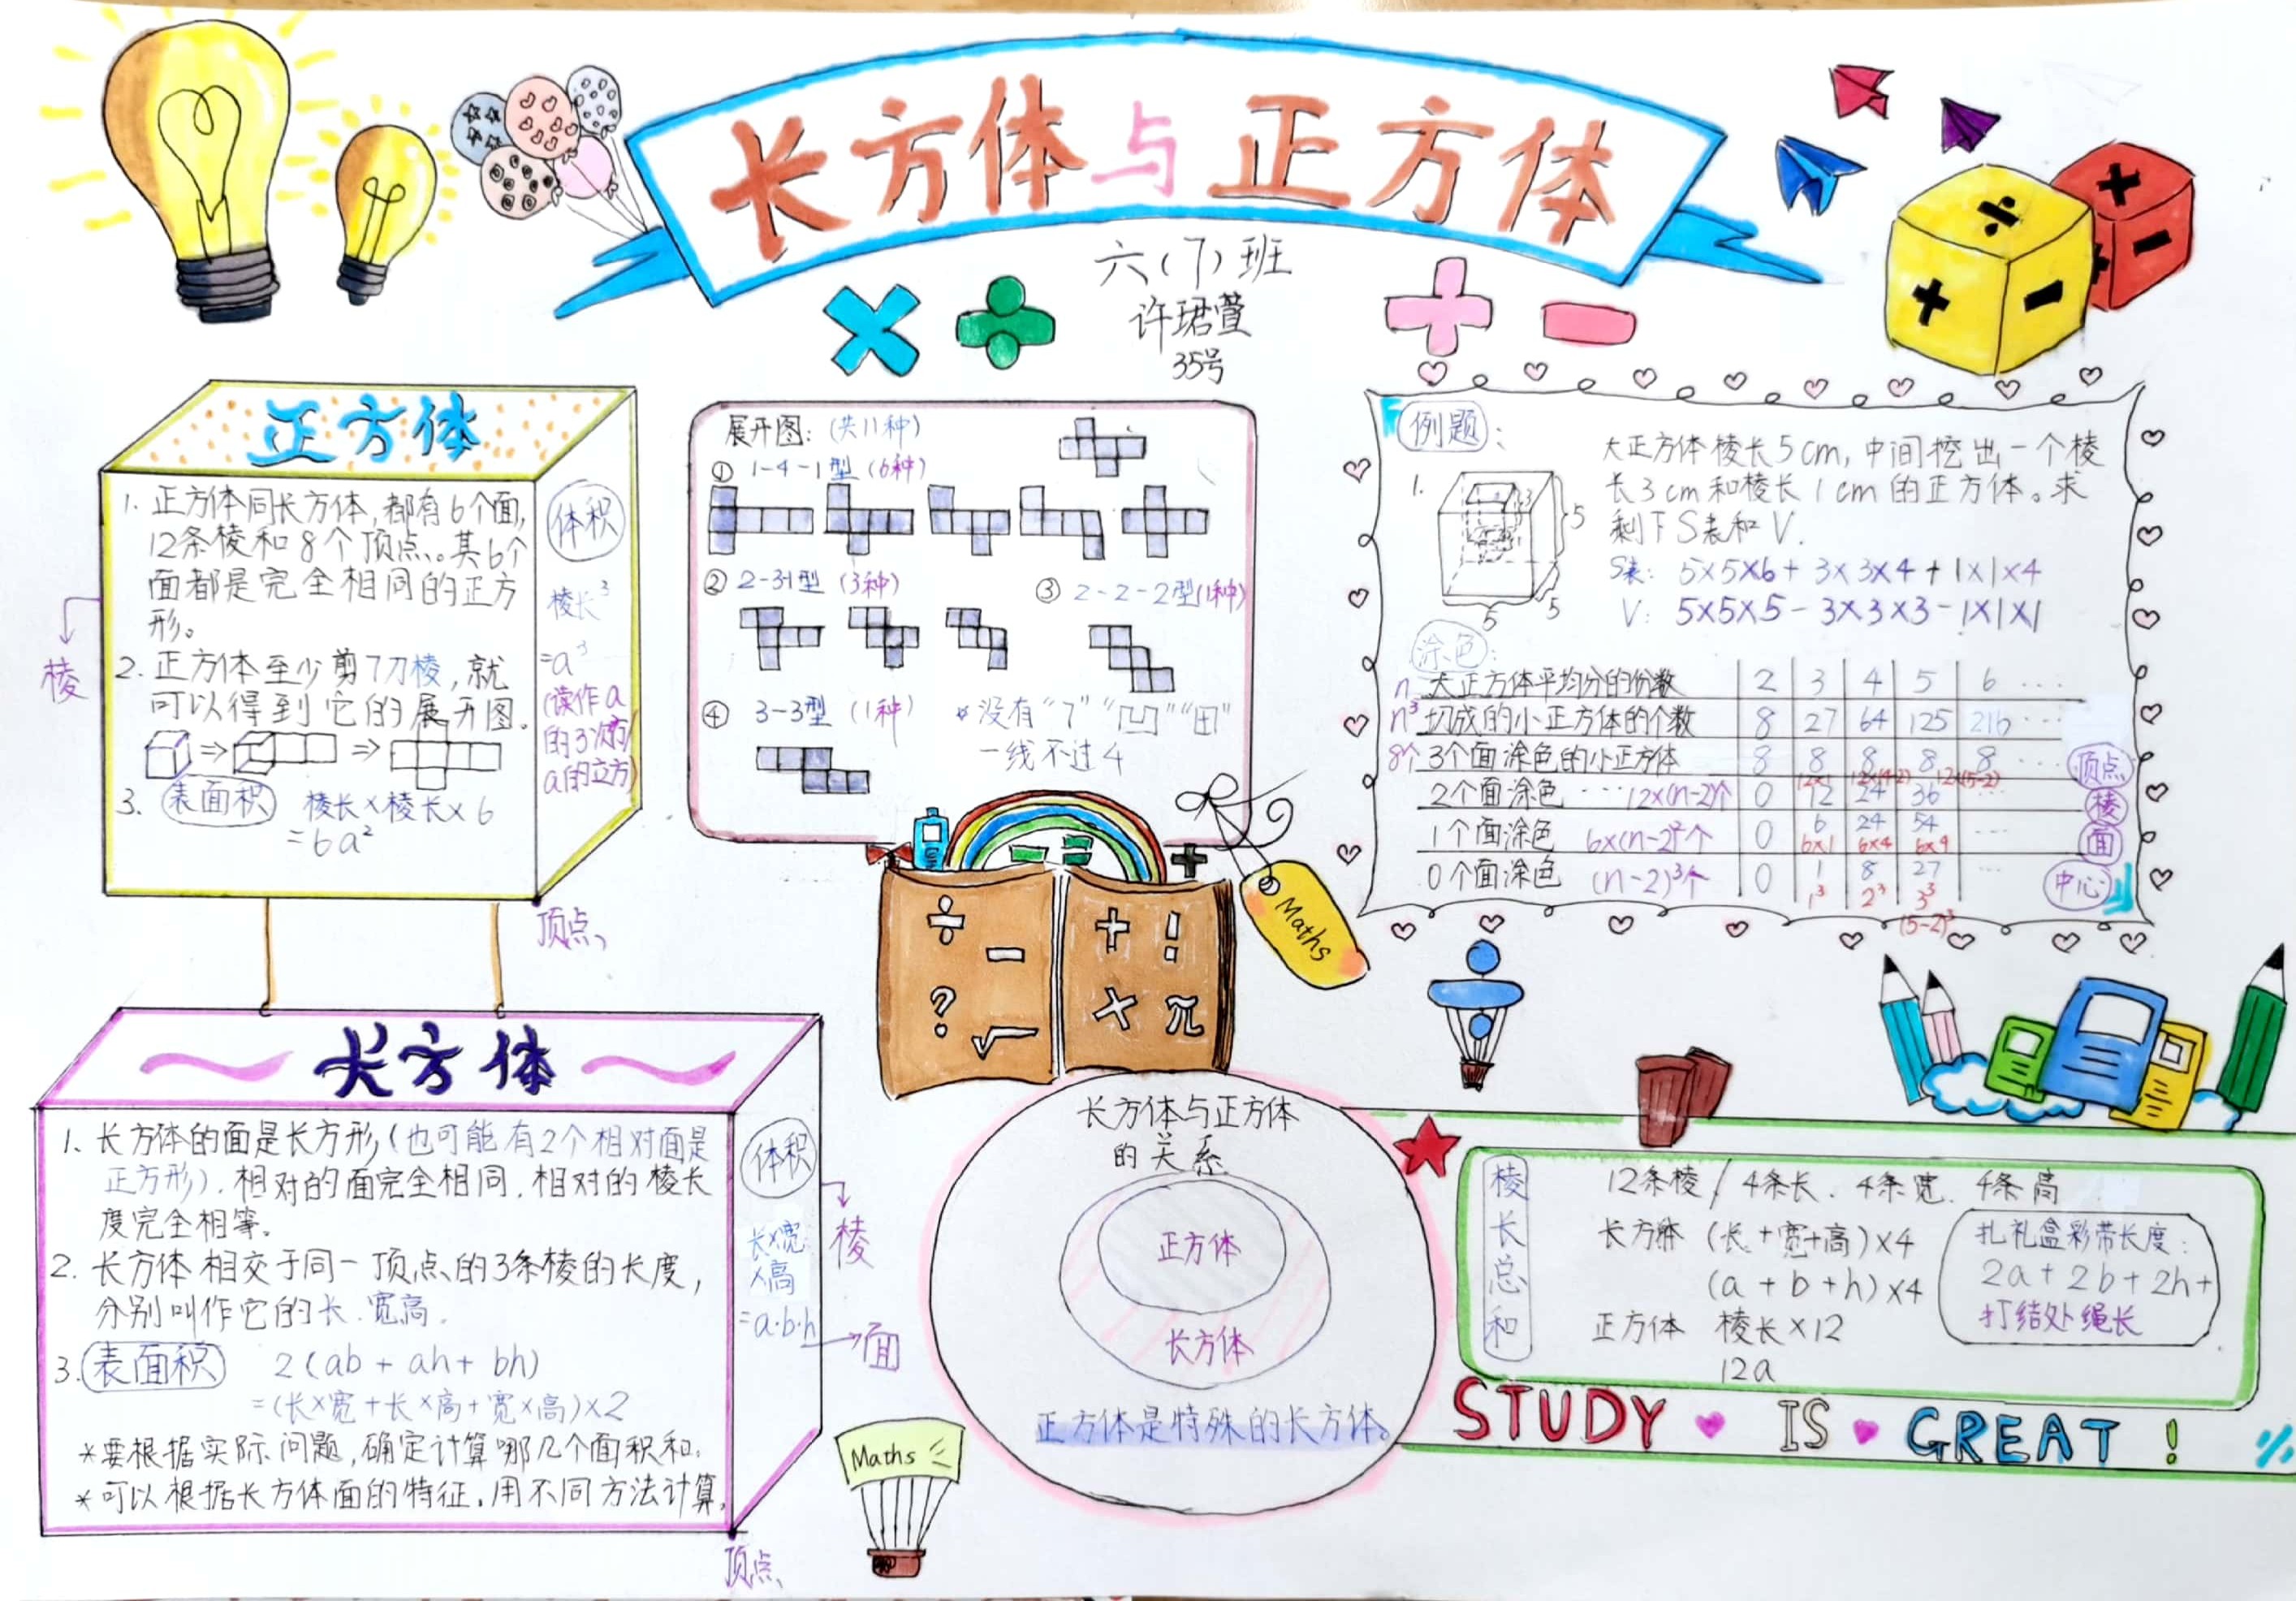 长方体与正方体
六(7)班
许珺萱
35号
正方体
1. 正方体同长方体,都有6个面,
12条棱和8个顶点。其6个
面都是完全相同的正方
形。
2. 正方体至少剪7刀棱,就
可以得到它的展开图。
⇒ ⇒
3. 表面积 棱长×棱长×6
=6a²
体积
棱长³
=a³
(读作a
的3次方/
a的立方)
棱
顶点
展开图:(共11种)
① 1-4-1型(6种)
② 2-3-1型(3种)
③ 2-2-2型(1种)
④ 3-3型(1种)
*没有“7”“凹”“田”
一线不过4
例题:
1.
大正方体棱长5cm,中间挖出一个棱
长3cm和棱长1cm的正方体。求
剩下S表和V.
S表: 5×5×6+3×3×4+1×1×4
V: 5×5×5-3×3×3-1×1×1
3
5
5
5
涂色:
n 大正方体平均分的份数 2 3 4 5 6 ...
n³ 切成的小正方体的个数 8 27 64 125 216 ...
8个 3个面涂色的小正方体 8 8 8 8 8 ... 顶点
12×1 12×(4-2) 12×(5-2)
2个面涂色 ... 12×(n-2)个 0 12 24 36 ... 棱
1个面涂色 6×(n-2)²个 0 6 24 54 ... 面
6×1 6×4 6×9
0个面涂色 (n-2)³个 0 1 8 27 ... 中心
1³ 2³ 3³
(5-2)³
Maths
÷ - + !
? √ × π
长方体
1. 长方体的面是长方形,(也可能有2个相对面是
正方形),相对的面完全相同,相对的棱长
度完全相等。
2. 长方体相交于同一顶点的3条棱的长度,
分别叫作它的长.宽高.
3. 表面积 2(ab+ah+bh)
=(长×宽+长×高+宽×高)×2
*要根据实际问题,确定计算哪几个面积和.
*可以根据长方体面的特征,用不同方法计算.
体积
长×宽
×高
=a·b·h
棱
面
顶点
Maths
长方体与正方体
的关系
正方体
长方体
正方体是特殊的长方体。
棱长总和
12条棱/4条长.4条宽.4条高
长方体 (长+宽+高)×4
(a+b+h)×4
正方体 棱长×12
12a
扎礼盒彩带长度:
2a+2b+2h+
打结处绳长
STUDY IS GREAT!